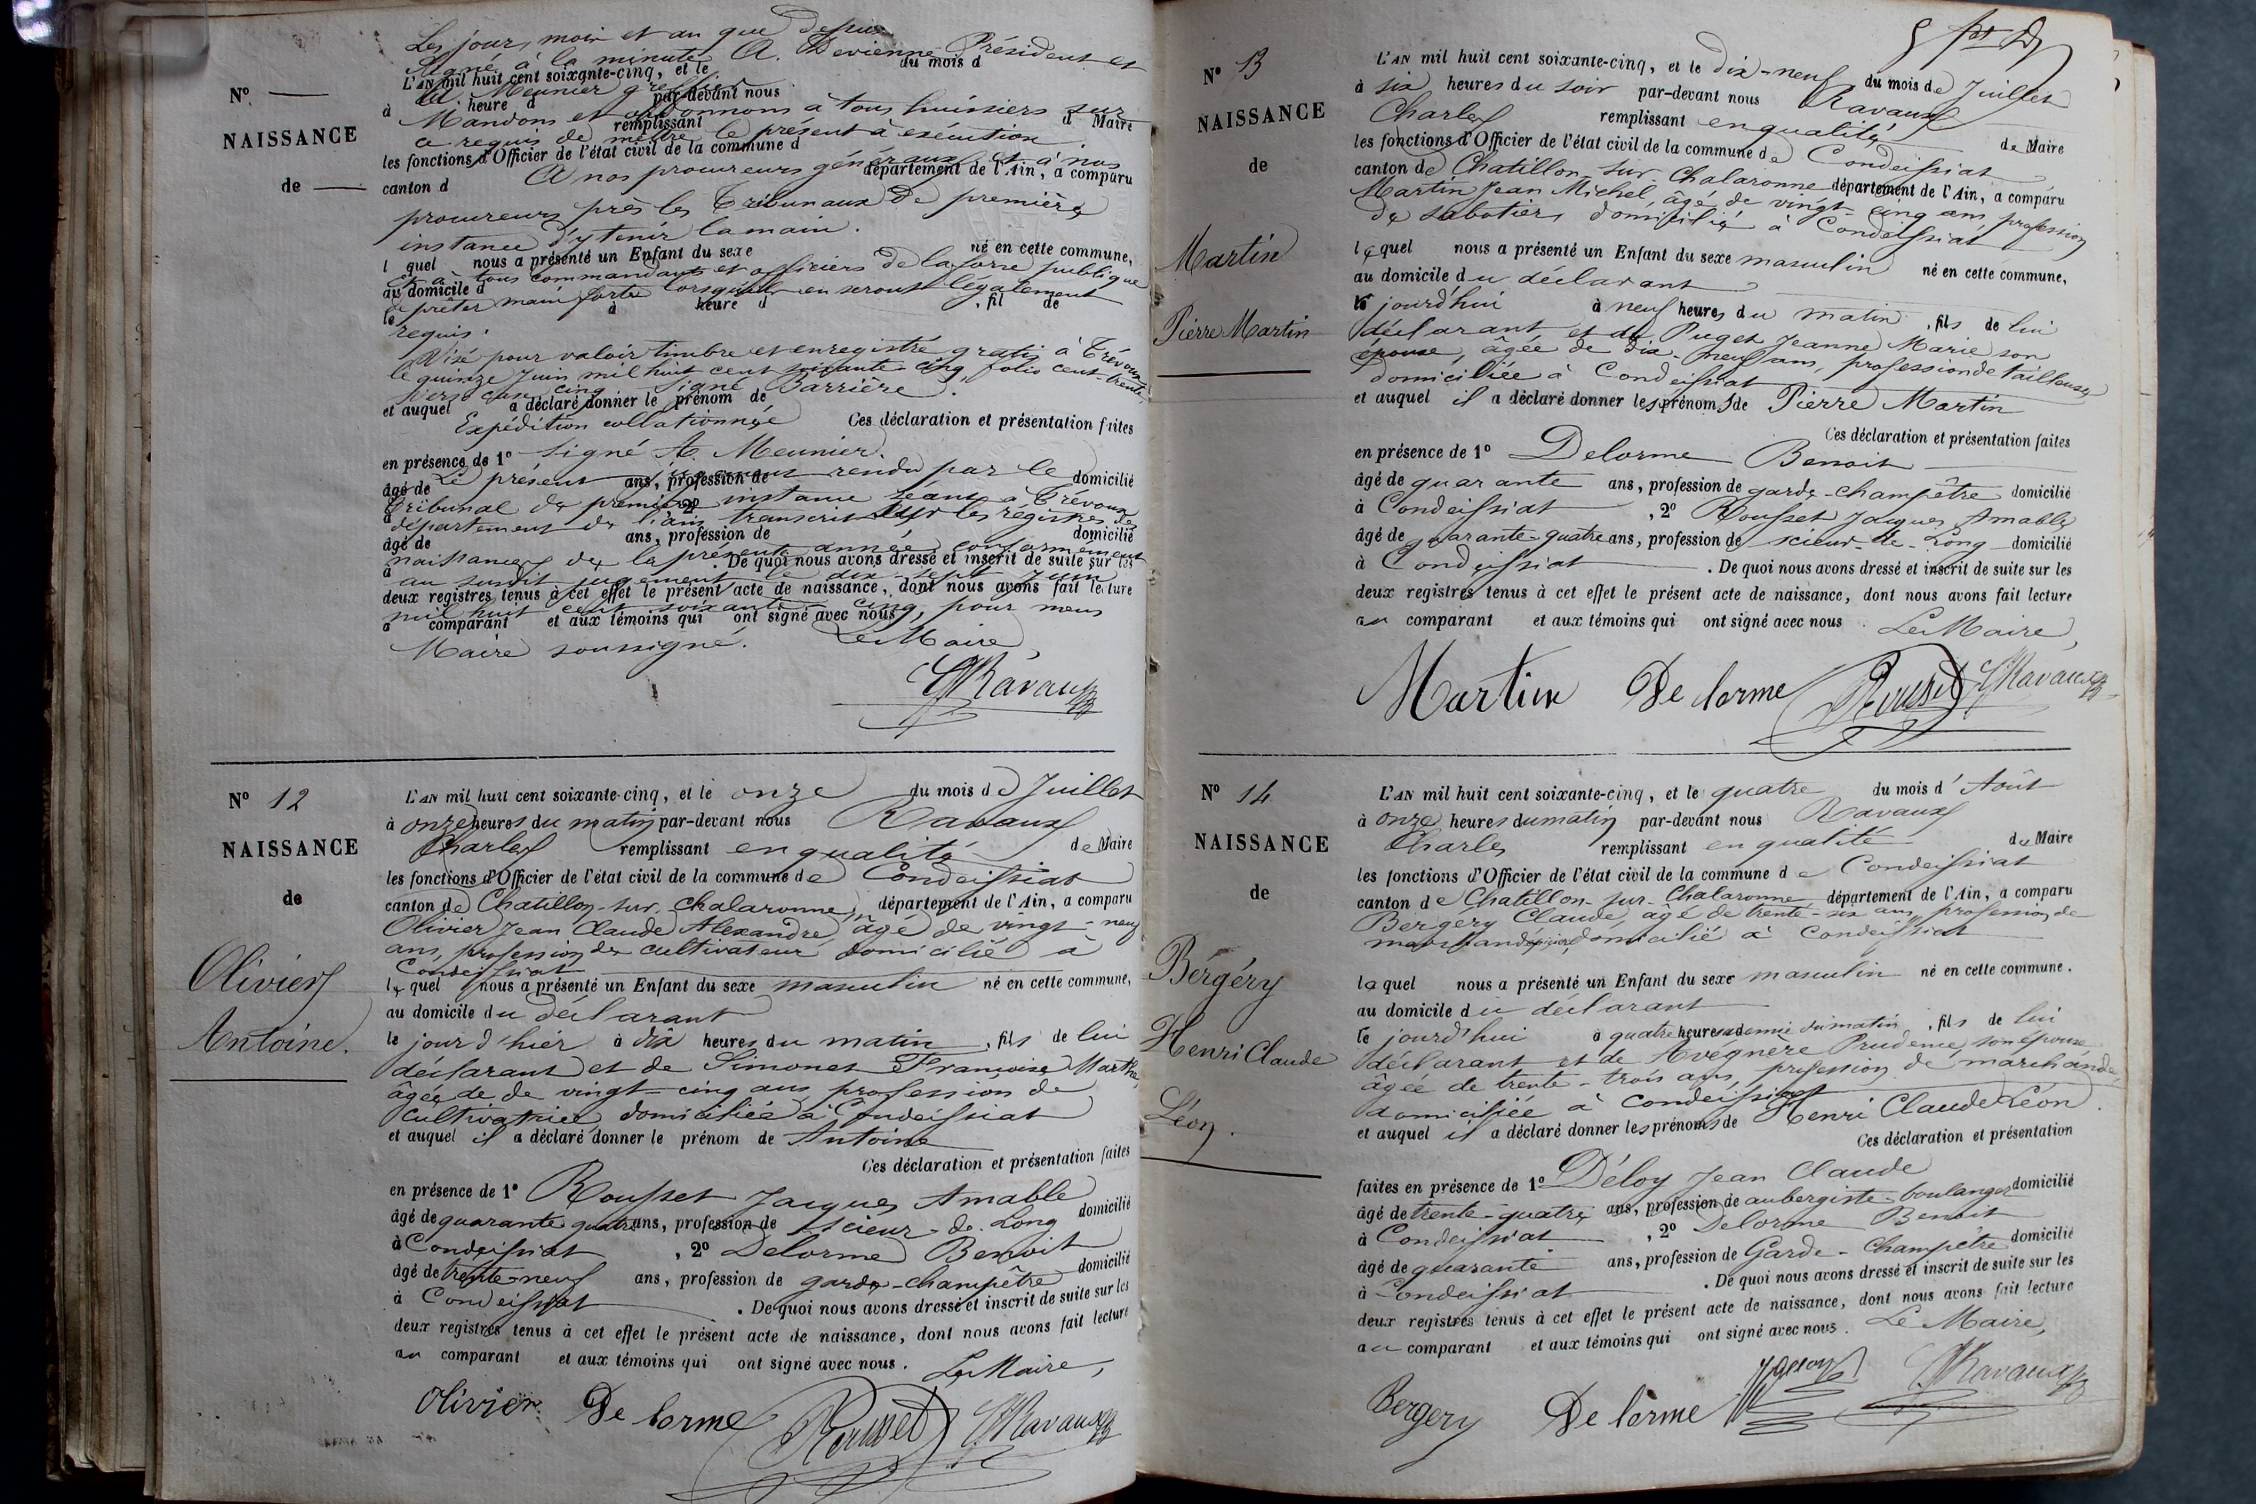 Les jour, mois et an que depuis
Signé à la minute A. Devienne Président et
L'AN mil huit cent soixante-cinq, et le du mois d
A. Meunier greffier
N° —
à heure d par-devant nous
Mandons et ordonnons à tous huissiers sur
remplissant d Maire
NAISSANCE
ce requis de mettre le présent à exécution
les fonctions d'Officier de l'état civil de la commune d
A nos procureurs généraux et à nos
de —
canton d département de l'Ain, a comparu
procureurs près les Tribunaux de première
instance d'y tenir la main.
l quel nous a présenté un Enfant du sexe né en cette commune,
et à tous commandants et officiers de la force publique
au domicile d
de prêter main forte lorsqu'ils en seront légalement
le à heure d , fil de
requis.
Visé pour valoir timbre et enregistré gratis à Trévoux
le quinze Juin mil huit cent soixante cinq, folio cent-trente,
verso case cinq. Signé Barrière.
et auquel a déclaré donner le prénom de
Expédition collationnée
Ces déclaration et présentation faites
en présence de 1° Signé A. Meunier.
Le présent jugement rendu par le
âgé de ans, profession de domicilié
Tribunal de première instance séant à Trévoux
à , 2°
département de l'ain transcrit sur les régistres des
âgé de ans, profession de domicilié
naissances de la présente année conformément
à . De quoi nous avons dressé et inscrit de suite sur les
au susdit jugement le dix-sept Juin
deux registres tenus à cet effet le présent acte de naissance, dont nous avons fait lecture
mil huit cent soixante cinq, pour nous
a comparant et aux témoins qui ont signé avec nous
Maire soussigné. Le Maire,
CRavaux
N° 12
NAISSANCE
de
Olivier
Antoine.
L'AN mil huit cent soixante-cinq, et le onze du mois de Juillet
à onze heures du matin par-devant nous Ravaux
Charles remplissant en qualité de Maire
les fonctions d'Officier de l'état civil de la commune de Condeissiat
canton de Chatillon-sur-Chalaronne, département de l'Ain, a comparu
Olivier Jean Claude Alexandre âgé de vingt-neuf
ans, profession de cultivateur domicilié à
Condeissiat
lequel nous a présenté un Enfant du sexe masculin né en cette commune,
au domicile du déclarant
le jour d'hier à dix heures du matin, fils de lui
déclarant et de Simonet Françoise Marthe
âgée de de vingt-cinq ans profession de
cultivatrice domiciliée à Condeissiat
et auquel il a déclaré donner le prénom de Antoine
Ces déclaration et présentation faites
en présence de 1° Rousset Jacques Amable
âgé de quarante quatre ans, profession de scieur-de-Long domicilié
à Condeissiat , 2° Delorme Benoit
âgé de trente-neuf ans, profession de garde-champêtre domicilié
à Condeissiat . De quoi nous avons dressé et inscrit de suite sur les
deux registres tenus à cet effet le présent acte de naissance, dont nous avons fait lecture
au comparant et aux témoins qui ont signé avec nous. Le Maire,
Olivier De lorme Rousset CRavaux
N° 13
NAISSANCE
de
Martin
Pierre Martin
L'AN mil huit cent soixante-cinq, et le dix-neuf du mois de Juillet
à six heures du soir par-devant nous Ravaux
Charles remplissant en qualité de Maire
les fonctions d'Officier de l'état civil de la commune de Condeissiat
canton de Chatillon-sur-Chalaronne département de l'Ain, a comparu
Martin Jean Michel, âgé de vingt-cinq ans, profession
de sabotier, domicilié à Condeissiat
lequel nous a présenté un Enfant du sexe masculin né en cette commune,
au domicile du déclarant
le jourd'hui à neuf heures du matin, fils de lui
déclarant et de Puget Jeanne Marie son
épouse, âgée de dix-neuf ans, profession de tailleuse
domiciliée à Condeissiat
et auquel il a déclaré donner les prénoms de Pierre Martin
Ces déclaration et présentation faites
en présence de 1° Delorme Benoit
âgé de quarante ans, profession de garde-champêtre domicilié
à Condeissiat , 2° Rousset Jacques Amable
âgé de quarante-quatre ans, profession de scieur-de-Long domicilié
à Condeissiat . De quoi nous avons dressé et inscrit de suite sur les
deux registres tenus à cet effet le présent acte de naissance, dont nous avons fait lecture
au comparant et aux témoins qui ont signé avec nous. Le Maire,
Martin De lorme Rousset CRavaux
N° 14
NAISSANCE
de
Bérgéry
Henri Claude
Léon.
L'AN mil huit cent soixante-cinq, et le quatre du mois d'Août
à onze heures du matin par-devant nous Ravaux
Charles remplissant en qualité de Maire
les fonctions d'Officier de l'état civil de la commune de Condeissiat
canton de Chatillon-sur-Chalaronne département de l'Ain, a comparu
Bergéry Claude, âgé de trente-six ans, profession de
marchand épicier, domicilié à Condeissiat
lequel nous a présenté un Enfant du sexe masculin né en cette commune.
au domicile du déclarant
le jourd'hui à quatre heures et demie du matin, fils de lui
déclarant et de Avégnère Prudence, son épouse
âgée de trente-trois ans, profession de marchande,
domiciliée à Condeissiat
et auquel il a déclaré donner les prénoms de Henri Claude Léon.
Ces déclaration et présentation
faites en présence de 1° Déloy Jean Claude
âgé de trente-quatre ans, profession de aubergiste-boulanger domicilié
à Condeissiat , 2° Delorme Benoit
âgé de quarante ans, profession de Garde-Champêtre domicilié
à Condeissiat . De quoi nous avons dressé et inscrit de suite sur les
deux registres tenus à cet effet le présent acte de naissance, dont nous avons fait lecture
au comparant et aux témoins qui ont signé avec nous. Le Maire,
Bergery De lorme CRavaux